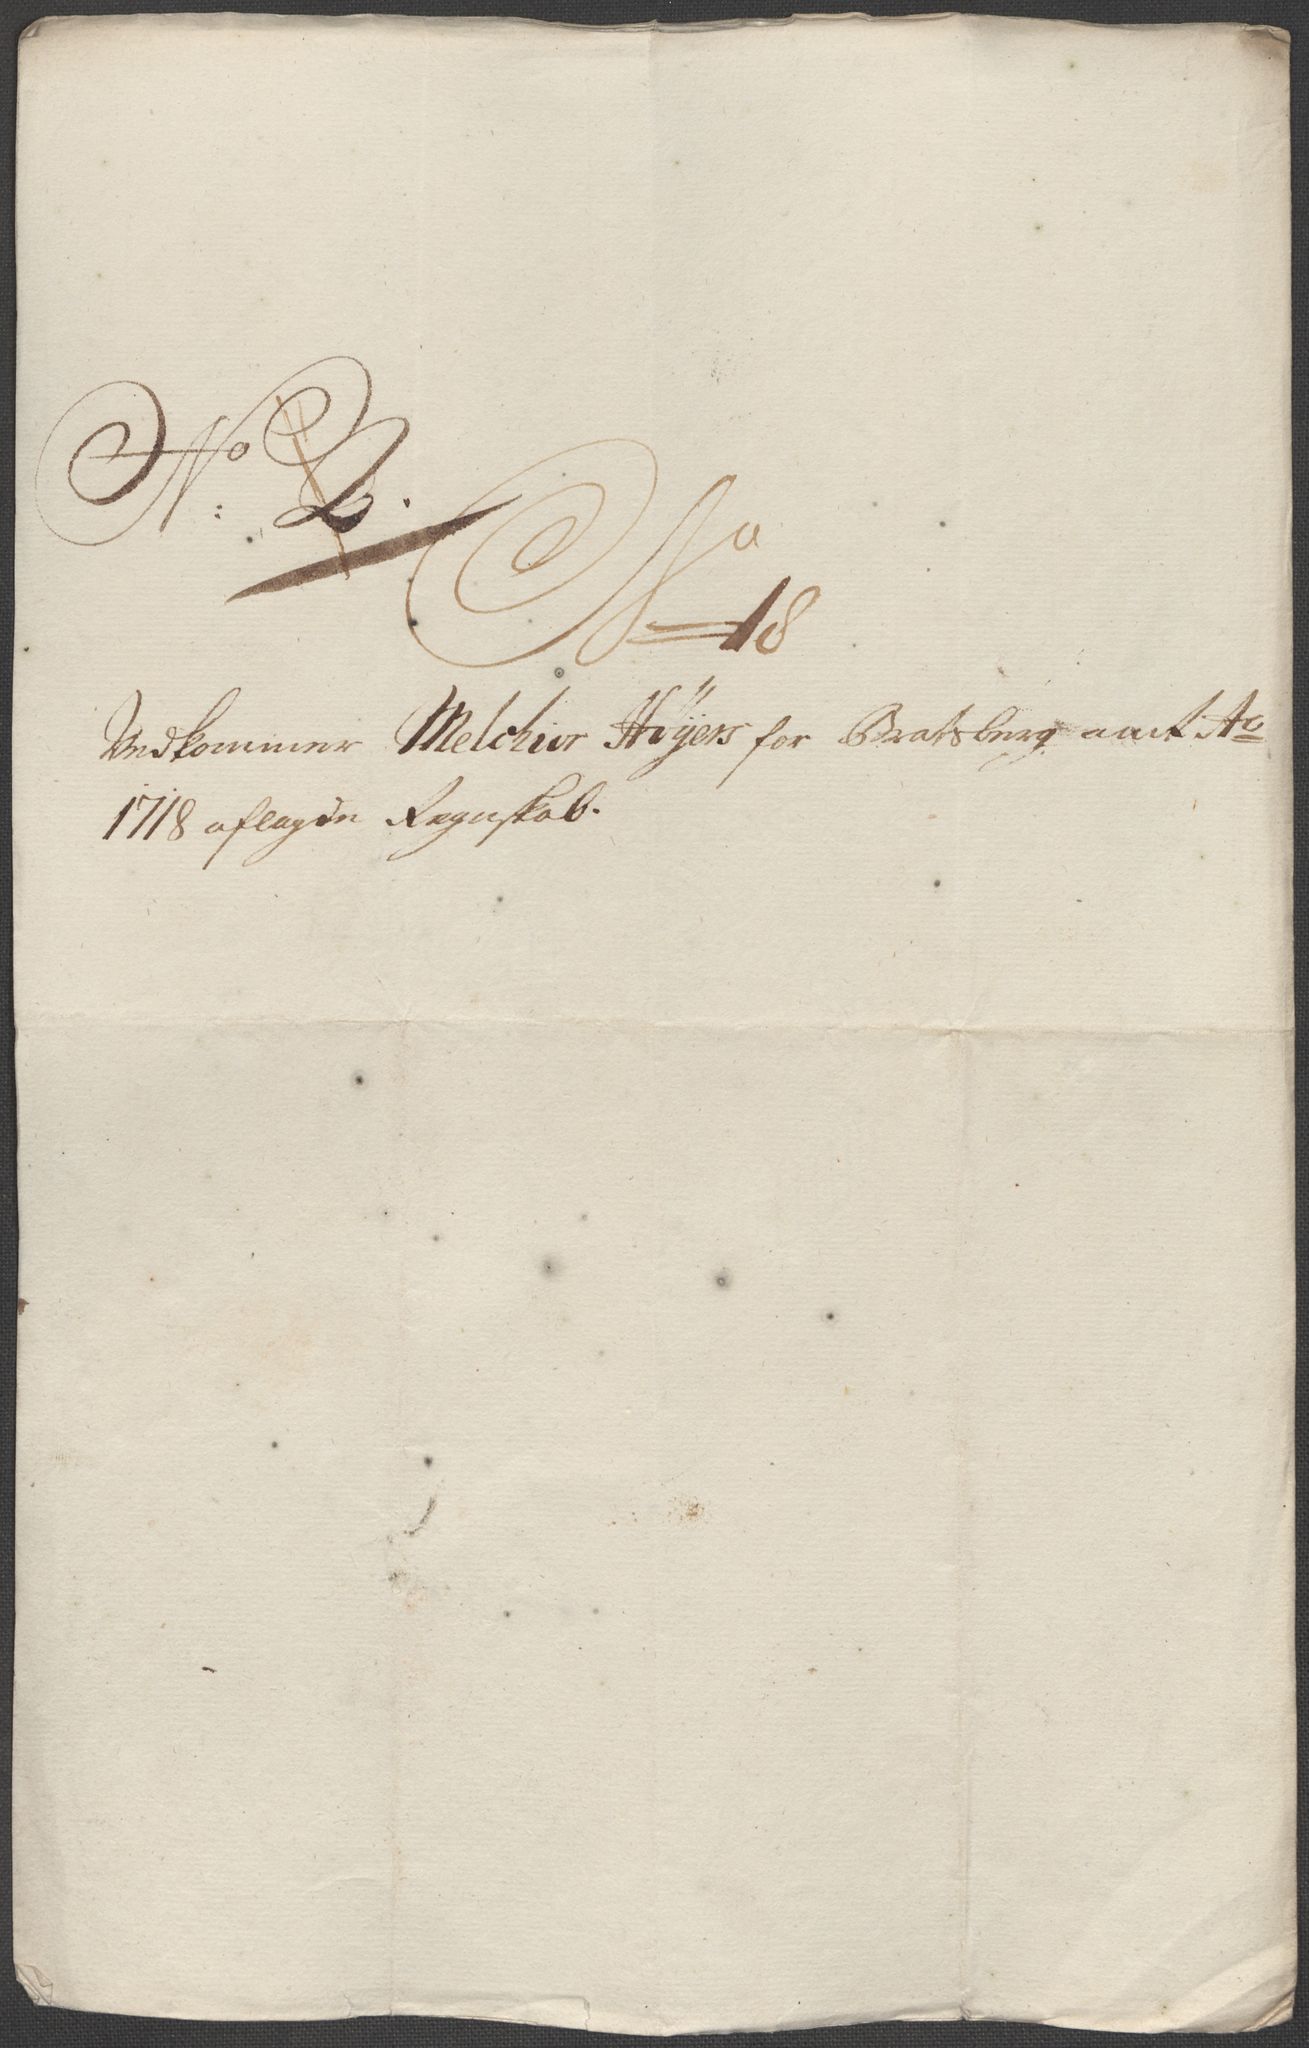 No: 2.
No 18
Vedkommer Melchior Höÿers for Bratsberg amt Ao
1718 aflagde Regnskab.